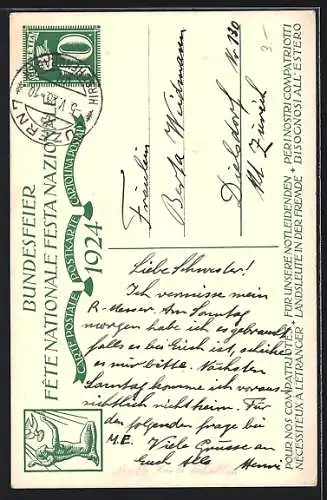 BUNDESFEIER
FÊTE NATIONALE FESTA NAZIONALE
CARTE POSTALE POSTKARTE CARTOLINA POSTALE
1924
HELVETIA
10
LUZERN
HIRSCH
3.-
Fräulein
Berta Weidmann
Dielsdorf Nr 130
Kt Zürich
Liebe Schwester!
Ich vermisse mein
R-Messer. Am Sonntag
morgen habe ich es gebraucht
falls es bei Euch ist, schicke
es mir bitte. Nächsten
Sonntag komme ich voraus-
sichtlich nicht heim. Für
den folgenden frage bei
M.E. Viele Grüsse an
Euch Alle Henri
POUR NOS COMPATRIOTES FÜR UNSERE NOTLEIDENDEN + PER I NOSTRI COMPATRIOTTI
NÉCESSITEUX A L'ÉTRANGER LANDSLEUTE IN DER FREMDE BISOGNOSI ALL'ESTERO